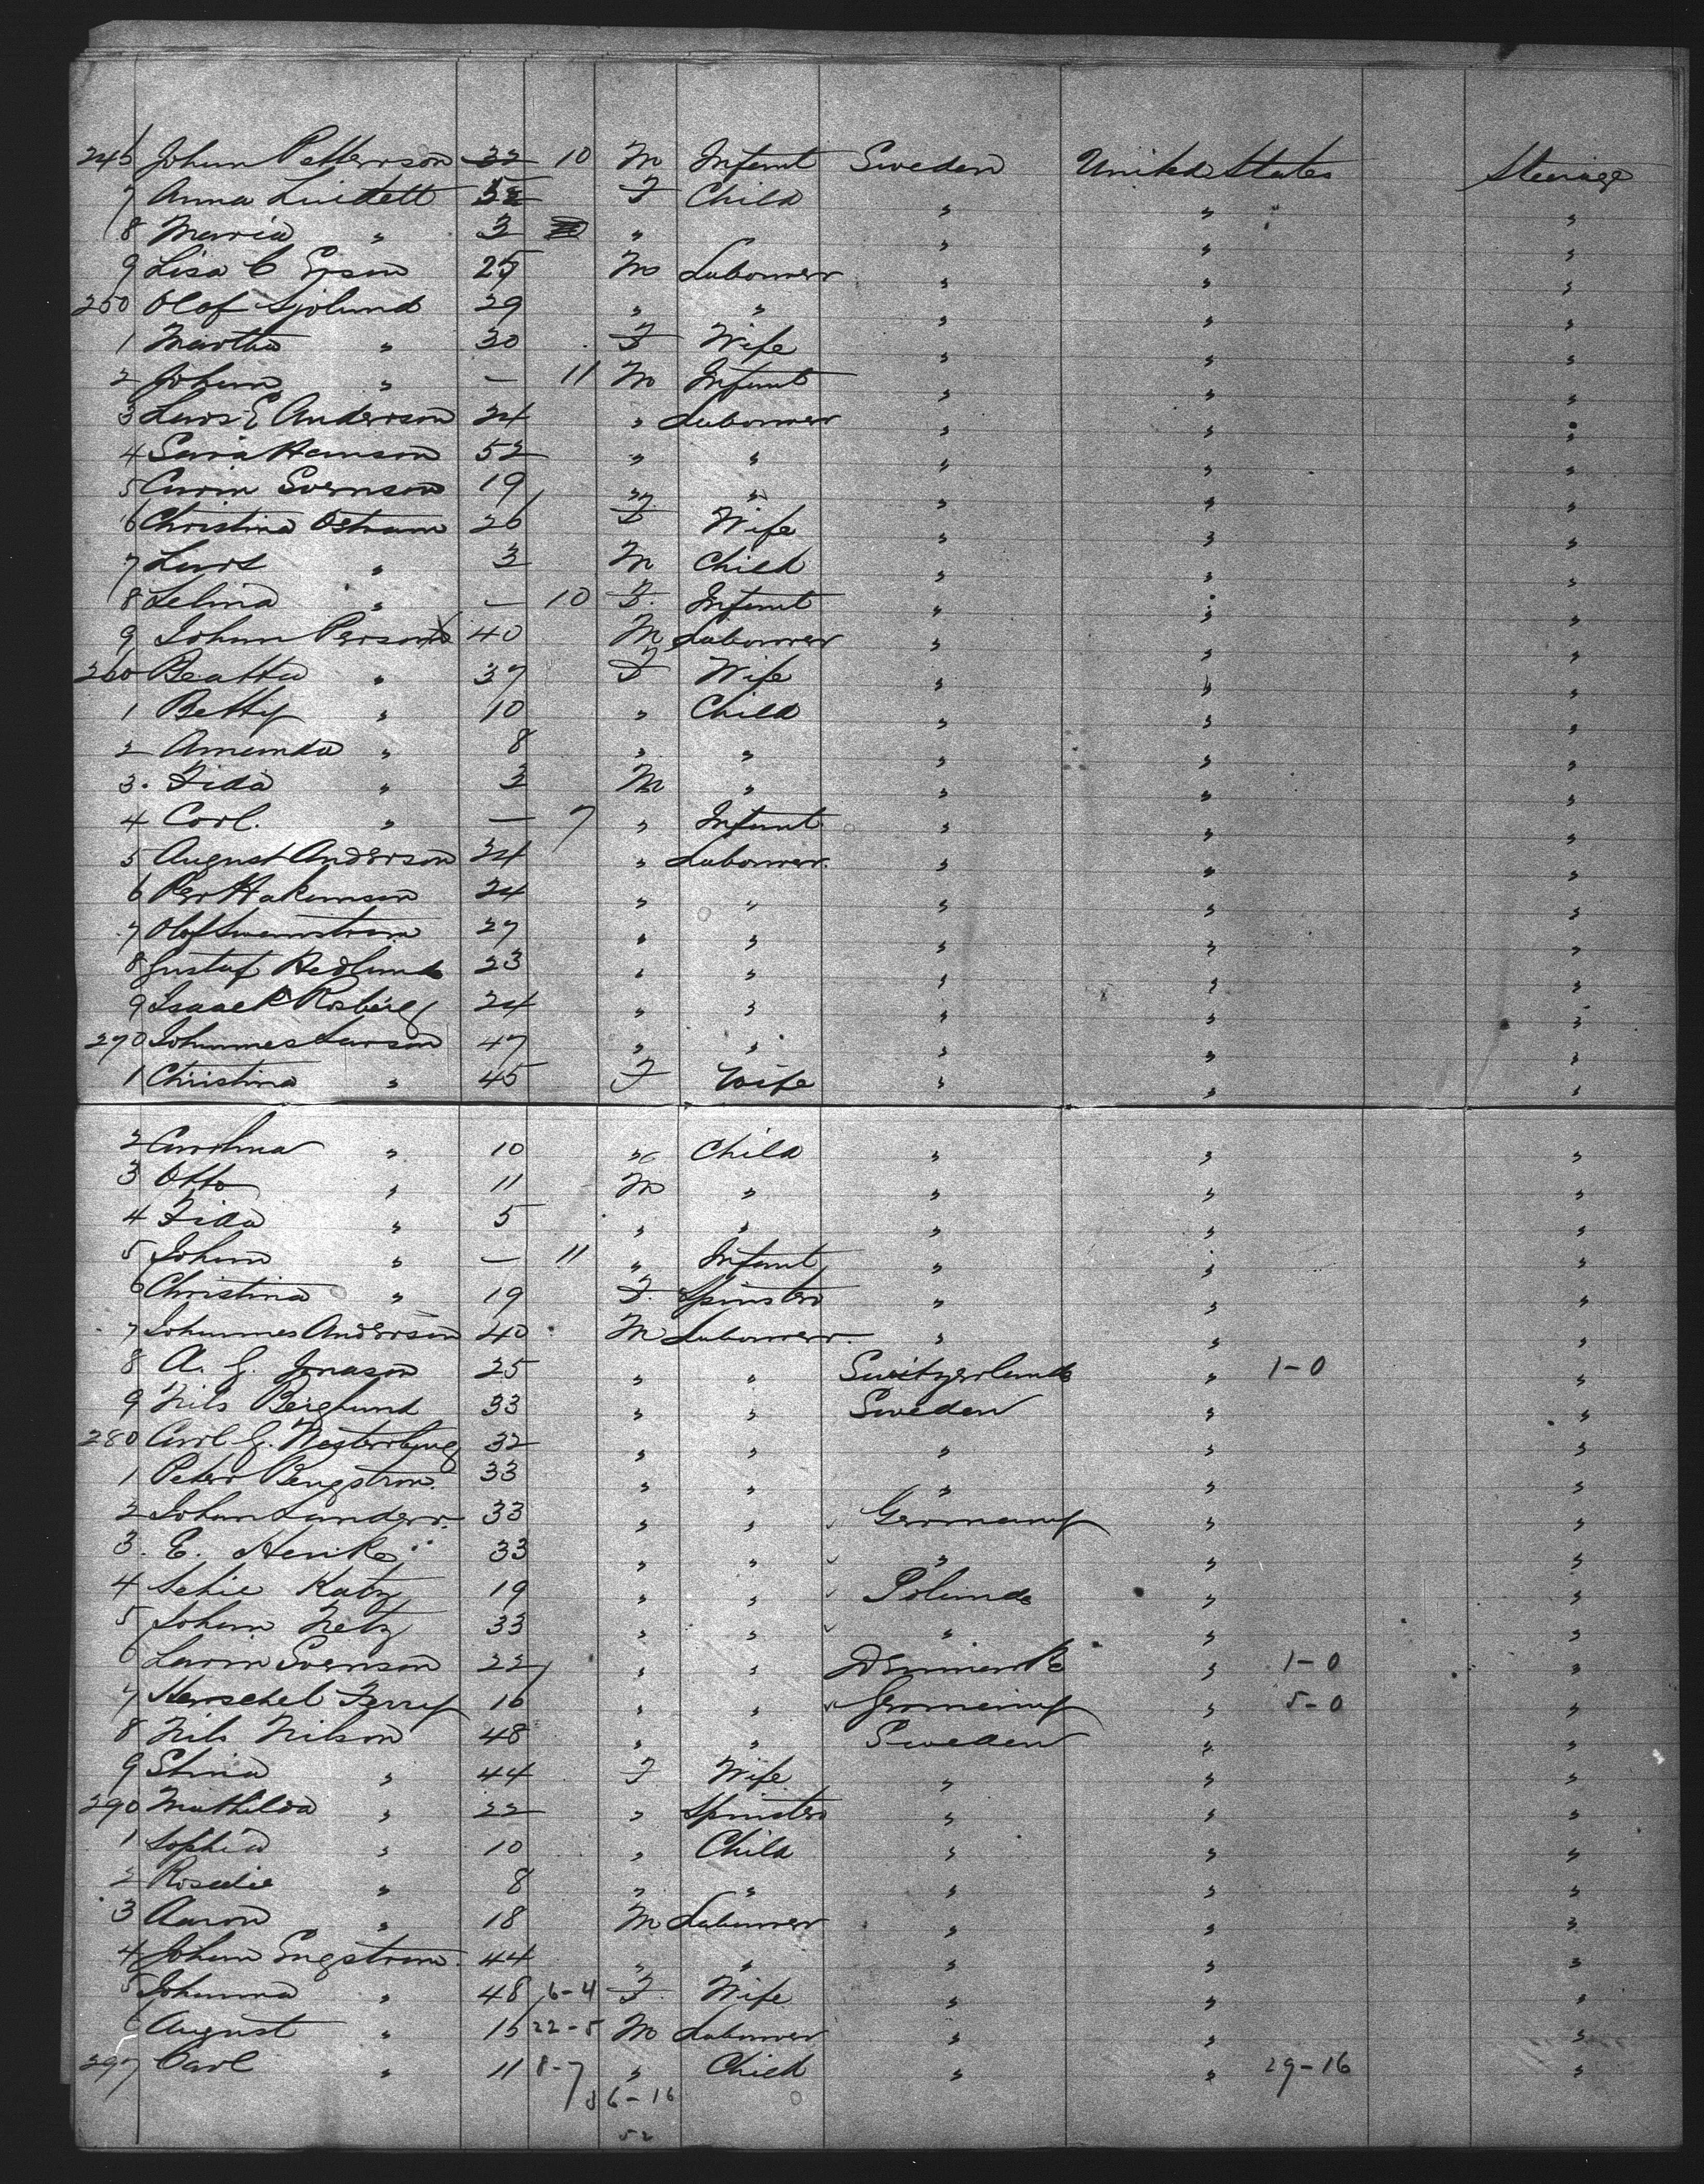 246 Johan Petterson 32 10 M Infant Sweden United States Steerage
7 Anna Lindell F Child " " "
8 Maria " 3 " " " "
9 Lisa C Erson 25 M Labourer " " "
250 Olof Sjolund 29 " " " " "
1 Martha " 30 F Wife " " "
2 Johan " — 11 M Infant " " "
3 Lars E Anderson 24 " Labourer " " "
4 Hanson 52 " " " " "
5 Svenson 19 " " " " "
6 Christina Ostrum 26 F Wife " " "
7 " 3 M Child " " "
8 Selina " — 10 F. Infant " " "
9 Johan Person 40 M Labourer " " "
260 Beatta " 37 F Wife " " "
1 Betty " 10 " Child " " "
2 Amanda " 8 " " " " "
3. Fida " 3 M " " " "
4 Carl. " — 7 " Infant " " "
5 August Anderson 24 " Labourer. " " "
6 Per Hakanson 24 " " " " "
7 Olof Swanstrom 27 " " " " "
8 Gustaf Hedlund 23 " " " " "
9 Isaac R Rosberg 24 " " " " "
270 Johannes Larson 47 " " " " "
1 Christina " 45 F Wife " " "
2 Carolina " 10 " Child " " "
3 Otto " 11 M " " " "
4 Fida " 5 " " " " "
5 Johan " — 11 " Infant " " "
6 Christina " 19 F. Spinster " " "
7 Johannes Anderson 40 M Labourer " " "
8 A. G. Jonason 25 " " Switzerland " 1-0 "
9 Nils Berglund 33 " " Sweden " "
280 Carl G. Westerberg 32 " " " " "
1 Peter Bengstrom. 33 " " " " "
2 Johan Lander. 33 " " Germany " "
3. E. Henke 33 " " " " "
4 Schie Katz 19 " " Poland " "
5 Johan Netz 33 " " " " "
6 Svenson 22 " " Denmark " 1-0 "
7 Herschel Ferry 16 " " Germany " 5-0 "
8 Nils Nilson 48 " " Sweden " "
9 Stina " 44 F Wife " " "
290 Mathilda " 22 " Spinster " " "
1 Sophia " 10 " Child " " "
2 Rosalie " 8 " " " " "
3 Aaron " 18 M Labourer " " "
4 Johan Engstrom. 44 " " " " "
5 Johanna " 48 6-4 F. Wife " " "
6 August " 15 22-5 M Labourer " " "
297 Carl " 11 8-7 " Child " " 29-16 "
36-16
52